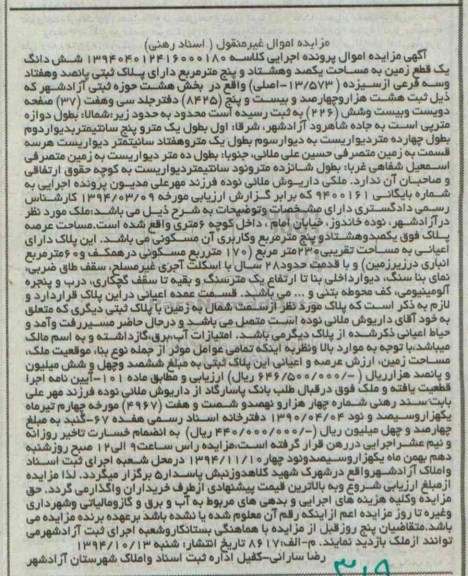 مزایده اموال غیرمنقول ( اسناد رهنی)
آگهی مزایده اموال پرونده اجرایی کلاسه ۱۳۹۴۰۴۰۱۲۴۱۶۰۰۰۱۸۰ شش دانگ
یک قطع زمین به مساحت یکصد وهشتاد و پنج مترمربع دارای پلاک ثبتی پانصد وهفتاد
وسه فرعی ازسیزده (۱۳/۵۷۳-اصلی) واقع در بخش هشت حوزه ثبتی آزادشهر که
ذیل ثبت هشت هزاروچهارصد و بیست و پنج (۸۴۲۵) دفترجلد سی وهفت (۳۷) صفحه
دویست وبیست وشش (۲۲۶) به ثبت رسیده است محدود به حدود زیر:شمالا: بطول دوازه
مترپی است به جاده شاهرود آزادشهر، شرقا: اول بطول یک مترو پنج سانتیمتربدیواردوم
بطول چهارده متردیواریست به دیوارسوم بطول یک متروهفتاد سانیتمتر دیواریست هرسه
قسمت به زمین متصرفی حسین علی ملائی، جنوبا: بطول ده متر دیواریست به زمین متصرفی
اسمعیل شفاهی غربا: بطول شانزده مترونود سانتیمتردیواریست به کوچه حقوق ارتفاقی
و صاحبان آن ندارد. ملکی داریوش ملائی نوده فرزند مهرعلی مدیون پرونده اجرایی به
شماره بایگانی ۹۴۰۰۱۶۱ که برابر گزارش ارزیابی مورخه ۱۳۹۴/۰۳/۰۹ کارشناس
رسمی دادگستری دارای مشخصات وتوضیحات به شرح ذیل می باشد:ملک مورد نظر
درآزادشهر، نوده خاندوز، خیابان امام ، داخل کوچه ۶متری واقع شده است.مساحت عرصه
پلاک فوق یکصدوهشتادو پنج مترمربع وکاربری آن مسکونی می باشد. این پلاک دارای
اعیانی به مساحت تقریبی۲۳۰متر مربع (۱۷۰ متربع مسکونی درهمکف و۶۰مترمربع
انباری درزیرزمین) و با قدمت حدود۲۸ سال با اسکلت آجری غیرمسلح، سقف طاق ضربی،
نمای بنا سنگ، دیوارداخلی بنا تا ارتفاع یک مترسنگ و بقیه تا سقف گچکاری، درب و پنجره
آلومینیومی، کف محوطه بتنی و ... می باشد. قسمت عمده اعیانی دراین پلاک قراردارد و
لازم به ذکر است که پلاک مورد نظر ازسمت شمال به زمین با پلاک ثبتی دیگری که متعلق
به خود آقای داریوش ملائی نوده است متصل می باشد و درحال حاضر مسیررفت وآمد و
حیاط اعیانی ذکرشده از پلاک دیگرمی باشد. امتیازات آب،برق،گازداشته و به اسم مالک
میباشد،با توجه به موارد بالا ونظربه اینکه تمامی عوامل موثر از جمله نوع بنا، موقعیت ملک،
مساحت زمین، ارزش عرصه و اعیانی این پلاک ثبتی به مبلغ ششصد وچهل و شش میلیون
و پانصد هزارریال (-/۶۴۶/۵۰۰/۰۰۰ ریال) ارزیابی و مطابق ماده ۱۰۱-آیین نامه اجرا
قطعیت یافته و ملک فوق درقبال طلب بانک پاسارگاد از داریوش ملائی نوده فرزند مهر علی
بابت سند رهنی شماره چهار هزارو نهصدو شصت و هفت (۴۹۶۷) مورخه چهارم تیرماه
یکهزاروسیصد و نود ۱۳۹۰/۰۴/۰۴ دفترخانه اسناد رسمی هفده ۶۷-گنبد به مبلغ
چهارصد و چهل میلیون ریال (-/۴۴۰/۰۰۰/۰۰۰ ریال) به انضمام خسارت تاخیر روزانه
و نیم عشراجرایی دررهن قرار گرفته است،مزایده راس ساعت۹ الی۱۲ صبح روزشنبه
دهم بهمن ماه یکهزاروسیصدونود چهار۱۳۹۴/۱۱/۱۰ درمحل شعبه اجرای ثبت اسناد
واملاک آزادشهرواقع درشهرک شهید کلاهدوزنبش پاسدار۵ برگزار میگردد. لذا مزایده
ازمبلغ ارزیابی شروع وبه بالاترین قیمت پیشنهادی ازطرف خریداران واگذارمی گردد. حق
مزایده وکلیه هزینه های اجرایی و بدهی های مربوط به آب و برق و گازومالیاتی وشهرداری
وغیره تا روز مزایده اعم ازاینکه رقم آن معلوم شده یا نشده باشد برعهده برنده مزایده می
باشد.متقاضیان پنج روزقبل از مزایده با هماهنگی بستانکاروشعبه اجرای ثبت آزادشهرمی
توانند ازملک بازدید نمایند. م-الف:۸۶۱۷ تاریخ انتشار: شنبه ۱۳۹۴/۱۰/۱۳
رضا سارانی-کفیل اداره ثبت اسناد واملاک شهرستان آزادشهر